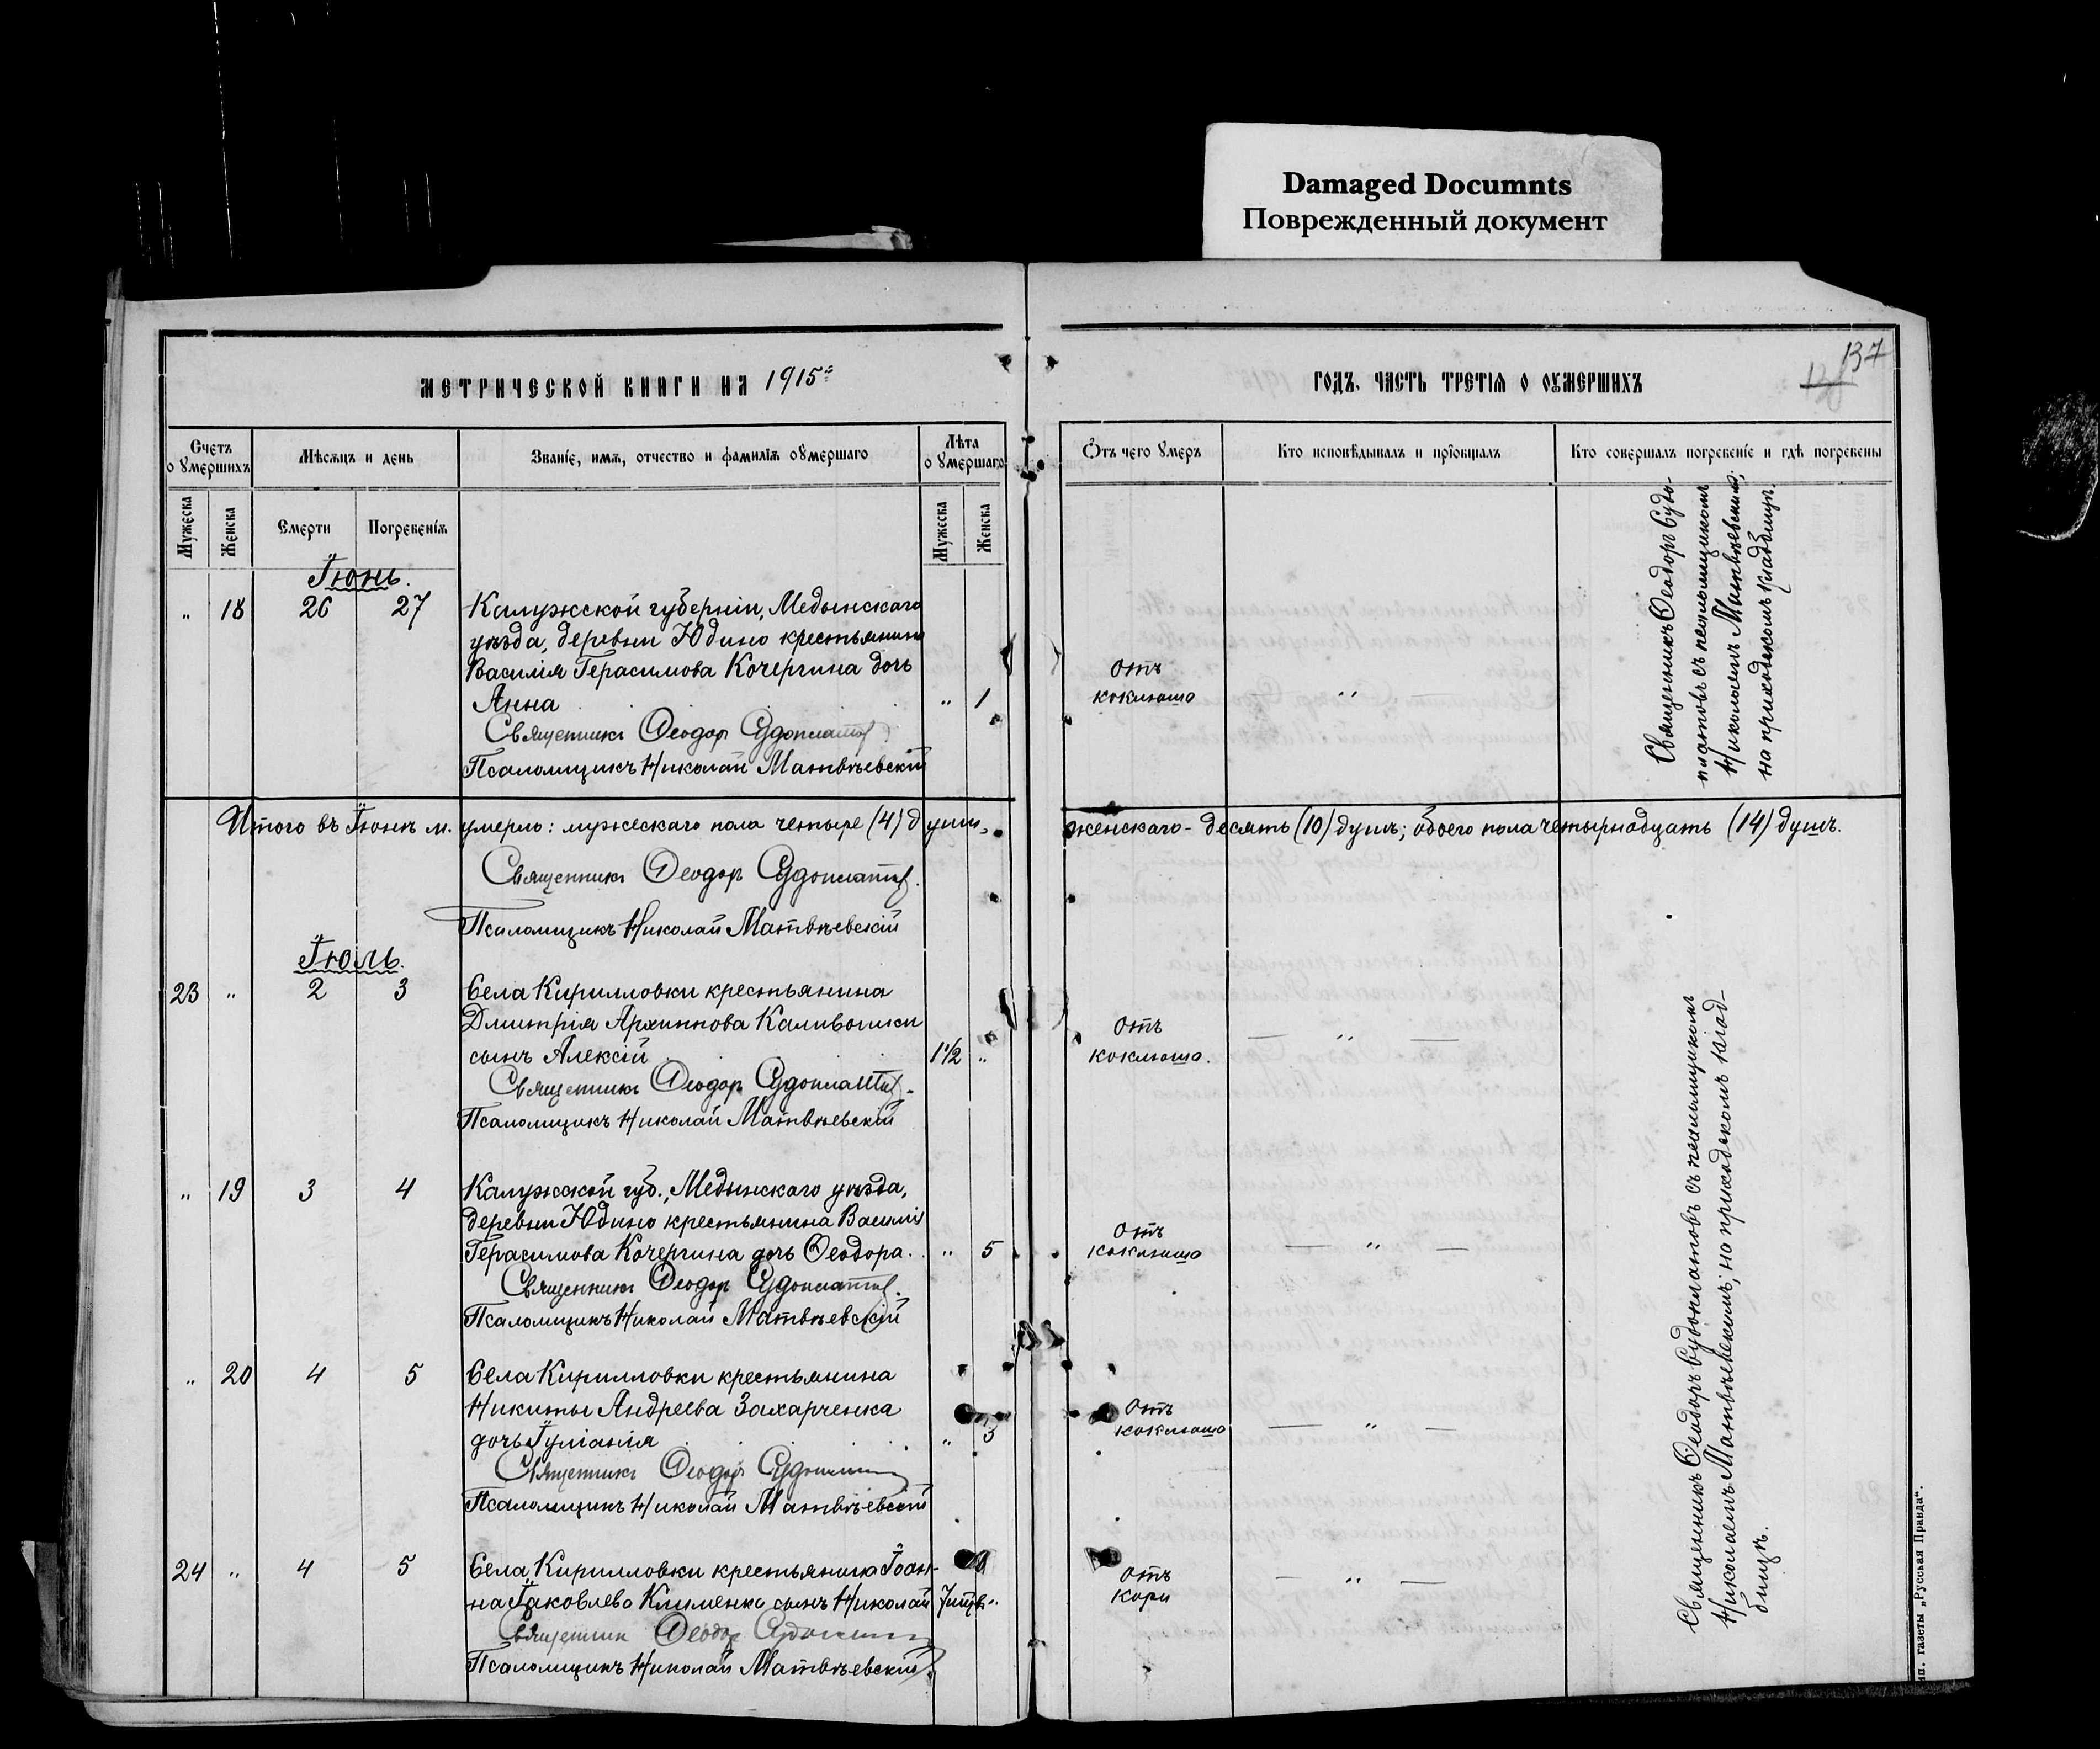 Damaged Documnts
Поврежденный документ
137
МЕТРИЧЕСКОЙ КНИГИ НА 1915й
ГОДЪ. ЧАСТЬ ТРЕТІѦ О ОУМЕРШИХЪ
Счетъ о умершихъ
Мѣсѧцъ и день
Званіе, имѧ, отчество и фамиліѧ оумершаго
Лѣта о умершаго
Ѿтъ чего умеръ
Кто исповѣдывалъ и пріобщалъ
Кто совершалъ погребеніе и гдѣ погребены
Мужеска
Женска
Смерти
Погребеніѧ
Мужеска
Женска
Іюнь.
„ 18 26 27 Калужской губерніи, Медынскаго
уѣзда, деревни Юдино крестьянина
Василія Герасимова Кочергина дочь
Анна „ 1
Отъ
коклюша „
Священникъ Ѳеодоръ Судоплатов
Псаломщикъ Николай Матвѣевскій
Священникъ Ѳеодоръ Судо-
платовъ съ псаломщикомъ
Николаемъ Матвѣевскимъ;
на приходскомъ кладбищѣ.
Итого въ Іюнѣ м. умерло: мужескаго пола четыре (4) души, женскаго - десять (10) душъ; обоего пола четырнадцать (14) душъ.
Священникъ Ѳеодоръ Судоплатов
Псаломщикъ Николай Матвѣевскій
Іюль.
23 „ 2 3 Села Кирилловки крестьянина
Дмитрія Архиппова
сынъ Алексій 1½ „
Отъ
коклюша. — „ —
Священникъ Ѳеодоръ Судоплатов
Псаломщикъ Николай Матвѣевскій
„ 19 3 4 Калужской губ., Медынскаго уѣзда,
деревни Юдино крестьянина Василія
Герасимова Кочергина дочь Ѳеодора. „ 5
Отъ
коклюша — „ —
Священникъ Ѳеодоръ Судоплатов
Псаломщикъ Николай Матвѣевскій
„ 20 4 5 Села Кирилловки крестьянина
Никиты Андреева Захарченка
дочь Іуліанія „ 3
Отъ
коклюша — „ —
Священникъ Ѳеодоръ Судоплатов
Псаломщикъ Николай Матвѣевскій
24 „ 4 5 Села Кирилловки крестьянина Іоан-
на Іаковлева Клименко сынъ Николай 7 „
Отъ
кори — „ —
Священник Ѳеодор Судоплатов
Псаломщикъ Николай Матвѣевскій
Священникъ Ѳеодоръ Судоплатовъ съ псаломщикомъ
Николаемъ Матвѣевскимъ; на приходскомъ клад-
бищѣ.
ип. газеты „Русская Правда“.